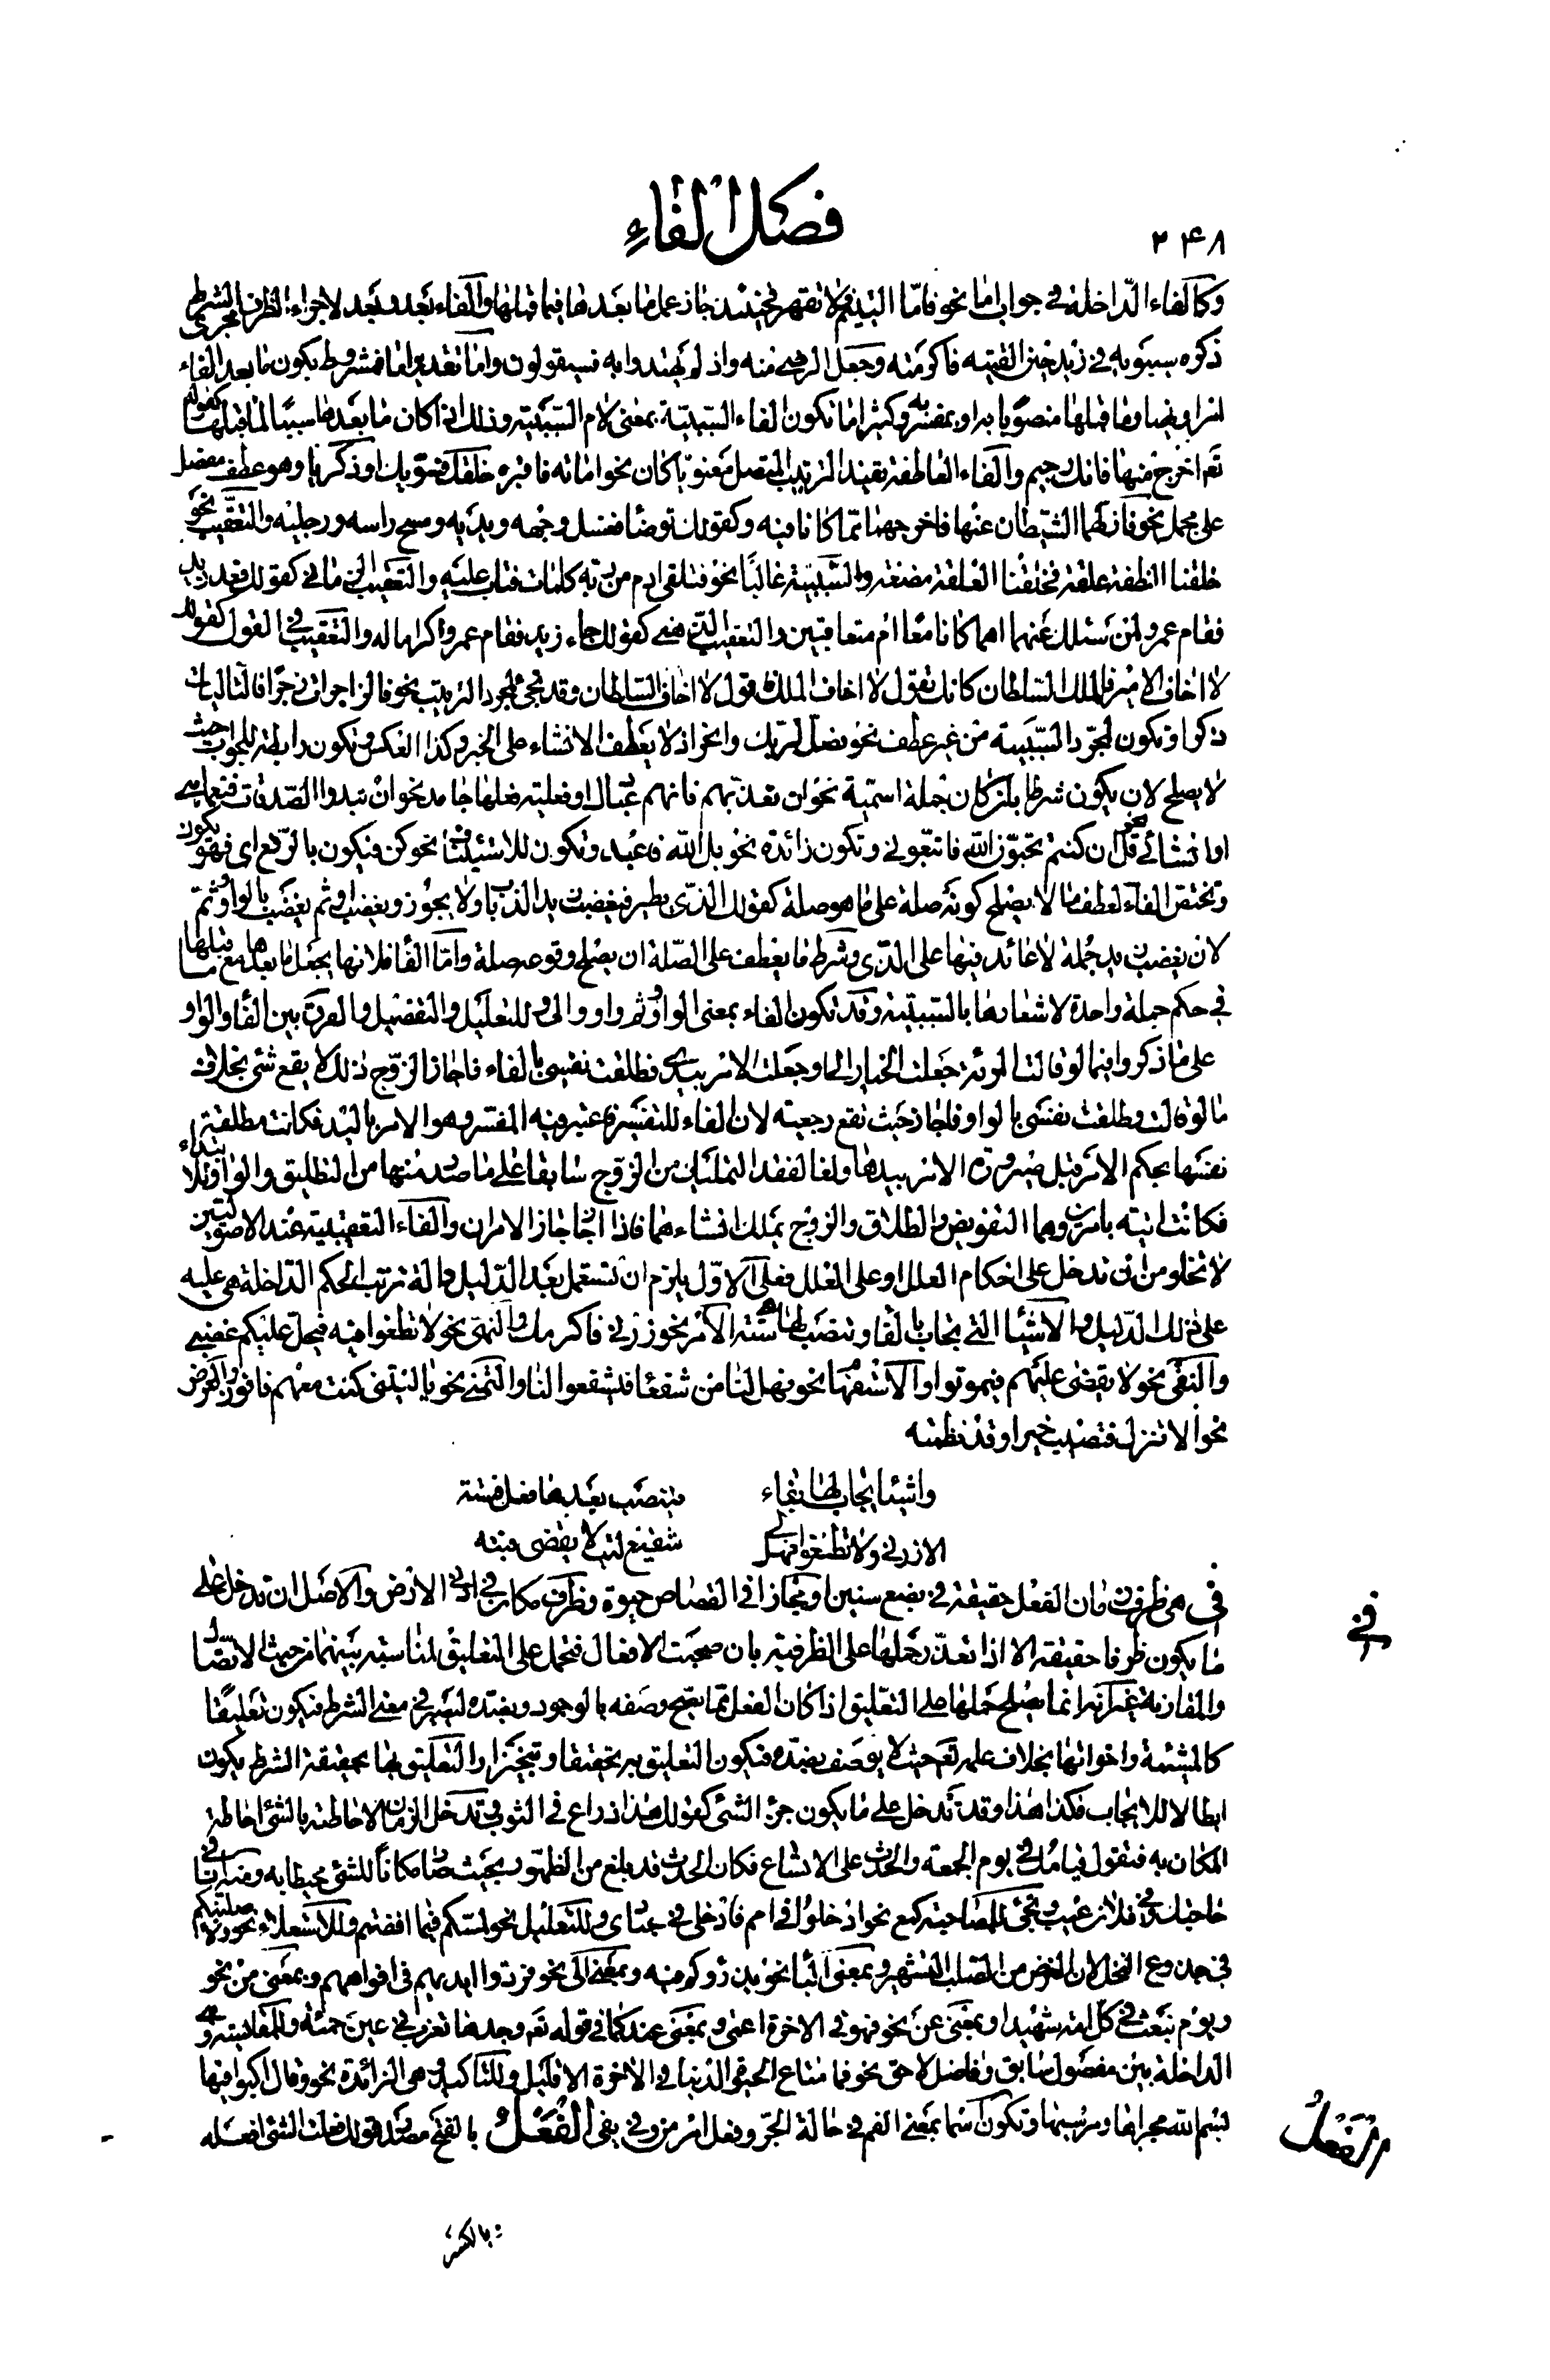 ۲۴۸
فصل الفاء
وكالفاء الداخلة في جواب اما نحو فاما اليتيم فلا تقهر فحينئذ جاز عمل ما بعدها فيما قبلها والفاء بعد وبعد لاجراء الظرف مجرى الشرط
ذكره سيبويه في زيد حين لقيته فاكرمته وجعل الرضي منه واذ لم يهتدوا به فسيقولون واما تقدير اما فمشروط بكون ما بعد الفاء
امرا او نهيا وما قبلها منصوبا به او بمفسر به وكثيرا ما تكون الفاء السببية بمعنى لام السببية وذلك اذا كان ما بعدها سببا لما قبلها كقوله
تعم اخرج منها فانك رجيم والفاء العاطفة تفيد الترتيب المتصل معنويا كان نحو اماته فاقبره خلقك فسويك او ذكريا وهو عطف مفصل
على مجمل نحو فازلهما الشيطان عنها فاخرجهما مما كانا فيه وكقولك توضأ فغسل وجهه ويديه ومسح راسه ورجليه والتعقيب نحو
خلقنا النطفة علقة فخلقنا العلقة مضغة والسببية غالبا نحو فتلقى ادم من ربه كلمات فتاب عليه والتعقيب الزماني كقولك قعد زيد
فقام عمرو لمن سئلك عنهما اهما كانا معا ام متعاقبين والتعقيب الذهني كقولك جاء زيد فقام عمرو اكراما له والتعقيب في القول كقولك
لا اخاف الامير فالملك السلطان كانك تقول لا اخاف الملك فاقول لا اخاف السلطان وقد تجئ لمجرد الترتيب نحو فالزاجرات زجرا فالتاليات
ذكرا وتكون لمجرد السببية من غير عطف نحو فصل لربك وانحر اذ لا يعطف الانشاء على الخبر وكذا العكس وتكون رابطة للجواب حيث
لا يصلح لان يكون شرطا بان كان جملة اسمية نحو ان تعذبهم فانهم عبادك او فعلية فعلها جامد نحو ان تبدوا الصدقات فنعما هي
او انشائي نحو قل ان كنتم تحبون الله فاتبعوني وتكون زائدة نحو بل الله فاعبد وتكون للاستيناف نحو كن فيكون بالرفع اي فهو يكون
وتختص الفاء بعطف ما لا يصلح كونه صلة على ما هو صلة كقولك الذي يطير فيغضب زيد الذباب ولا يجوز ويغضب او ثم يغضب بالواو وثم
لان يغضب زيد جملة لا عائد فيها على الذي وشرط ما يعطف على الصلة ان يصلح وقوعه صلة واما الفاء فلانها تجعل ما بعدها مع ما قبلها
في حكم جملة واحدة لاشعارها بالسببية وقد تكون الفاء بمعنى الواو وثم واو والى وللتعليل والتفصيل والفرق بين الفاء والواو
على ما ذكروا فيما لو قالت المرئة جعلت الخيار الي او جعلت الامر بيدي فطلقت نفسي بالفاء فاجاز الزوج ذلك لا يقع شئ بخلاف
ما لو قالت وطلقت نفسي بالواو فاجاز حيث تقع رجعية لان الفاء للتفسير فاعتبر فيه المفسر وهو الامر باليد فكانت مطلقة
نفسها بحكم الامر قبل صيرورة الامر بيدها ولغا لفقد التمليك من الزوج سابقا على ما صدر منها من التطليق والواو للابتداء
فكانت اتية بامرين وهما التفويض والطلاق والزوج يملك انشاءهما فاذا اجاز جاز الامران والفاء التعقيبية عند الاصوليين
لا تخلو من ان تدخل على احكام العلل او على العلل فعلى الاول يلزم ان تستعمل بعد الدليل دالة ترتب الحكم الداخلة هي عليه
على ذلك الدليل والاشياء التي تجاب بالفاء وتنصب لها ستة الامر نحو زرني فاكرمك والنهي نحو لا تطغوا فيه فيحل عليكم غضبي
والنفي نحو لا يقضى عليهم فيموتوا والاستفهام نحو فهل لنا من شفعاء فيشفعوا لنا والتمني نحو يا ليتني كنت معهم فافوز والعرض
نحو الا تنزل فتصيب خيرا وقد نظمته
واشيا يجاب لها بفاء فينصب بعدها فعل فستة
الا زرني ولا تطغوا فهل لي شفيع ليت لا يقضى فبته
في هي ظرف زمان الفعل حقيقة في بضع سنين او مجازا في القصاص حيوة وظرف مكان في ادنى الارض والاصل ان تدخل على
ما يكون ظرفا حقيقة الا اذا تعذر حملها على الظرفية بان صحبت الافعال فتحمل على التعليق لمناسبة بينهما من حيث الاتصال
والمقارنة غير انه انما يصلح حملها على التعليق اذا كان الفعل مما يصح وصفه بالوجود وبضده ليصير في معنى الشرط فيكون تعليقا
كالمشيئة واخواتها بخلاف علمه تعم حيث لا يوصف بضده فيكون التعليق به تحقيقا وتنجيزا والتعليق بها بحقيقة الشرط يكون
ابطالا للايجاب فكذا هذا وقد تدخل على ما يكون جزء الشئ كقولك هذا ذراع في الثوب وتدخل الزمان لاحاطته بالشئ احاطة
المكان به فتقول قيامك في يوم الجمعة والحدث على الاتساع فكان الحدث قد بلغ من الظهور بحيث صار مكانا للشئ محيطا به ومنه انا في
حاجتك وفي فلان عيب وتجئ للمصاحبة كمع نحو ادخلوا في امم فادخلي في عبادي وللتعليل نحو لمسكم فيما افضتم وللاستعلاء نحو ولاصلبنكم
في جذوع النخل لان الغرض من الصلب التشهير وبمعنى الباء نحو يذرؤكم فيه وبمعنى الى نحو فردوا ايديهم في افواههم وبمعنى من نحو
ويوم نبعث في كل امة شهيدا وبمعنى عن نحو فهو في الاخرة اعمى وبمعنى عند كما في قوله تعم وجدها تغرب في عين حمئة وللمقايسة وهي
الداخلة بين مفضول سابق وفاضل لاحق نحو فما متاع الحيوة الدنيا في الاخرة الا قليل وللتاكيد وهي الزائدة نحو وقال اركبوا فيها
بسم الله مجراها ومرسيها وتكون اسما بمعنى الفم في حالة الجر وفعل امر من وفى يفي الفعل بالفتح مصدر قولك فعلت الشئ افعله
في
الفعل
بالكسر